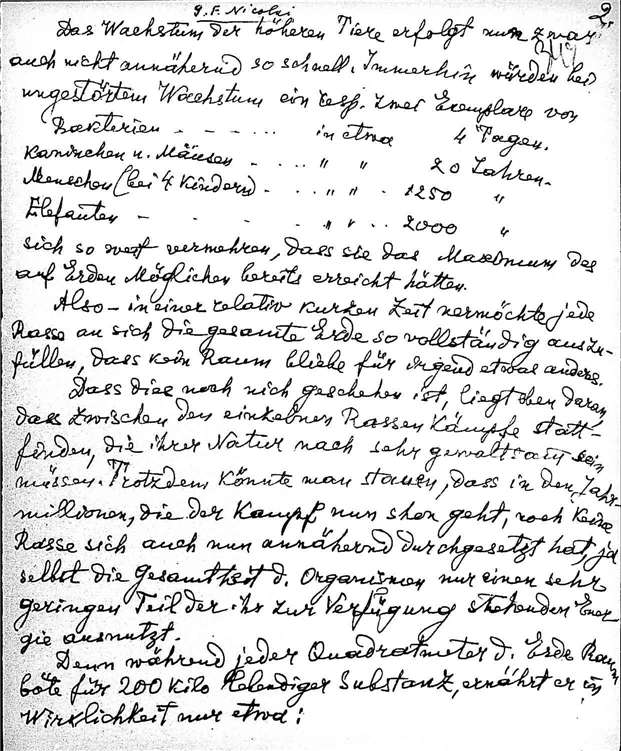 G. F. Nicolai
2
Das Wachstum der höheren Tiere erfolgt nun zwar
auch nicht annähernd so schnell. Immerhin würden bei
ungestörtem Wachstum ein resp. zwei Exemplare von
Bakterien - - - ... in etwa 4 Tagen.
Kaninchen u. Mäusen - ... " " 20 Jahren.
Menschen (bei 4 Kindern) - ... " " . 1250 "
Elefanten - - - - . " " .. 2000 "
sich so weit vermehren, dass sie das Maximum des
auf Erden Möglichen bereits erreicht hätten.
Also - in einer relativ kurzen Zeit vermöchte jede
Rasse an sich die gesamte Erde so vollständig auszu-
füllen, dass kein Raum bliebe für irgend etwas anders.
Dass dies noch nich geschehen ist, liegt eben daran,
dass zwischen den einzelnen Rassen Kämpfe statt-
finden, die ihrer Natur nach sehr gewaltsam sein
müssen. Trotzdem könnte man staunen, dass in den Jahr-
millionen, die der Kampf nun shon geht, noch keine
Rasse sich auch nun annähernd durchgesetzt hat, ja
selbst die Gesamtheit d. Organismen nur einen sehr
geringen Teil der ihr zur Verfügung stehenden Ener
gie ausnutzt.
Denn während jeder Quadratmeter d. Erde Raum
böte für 200 Kilo lebendiger Substanz, ernährt er in
Wirklichkeit nur etwa: